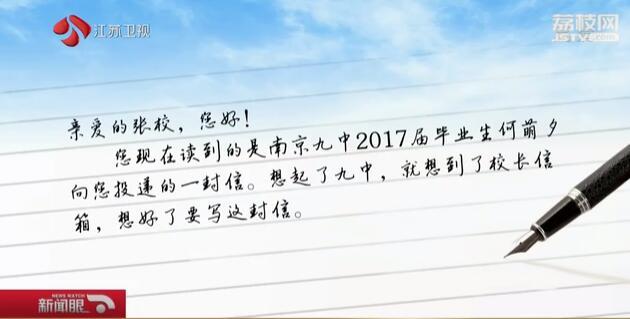 江苏卫视
荔枝网
JSTV.COM
亲爱的张校，您好！
您现在读到的是南京九中2017届毕业生何萌夕
向您投递的一封信。想起了九中，就想到了校长信
箱，想好了要写这封信。
NEWS WATCH
新闻眼